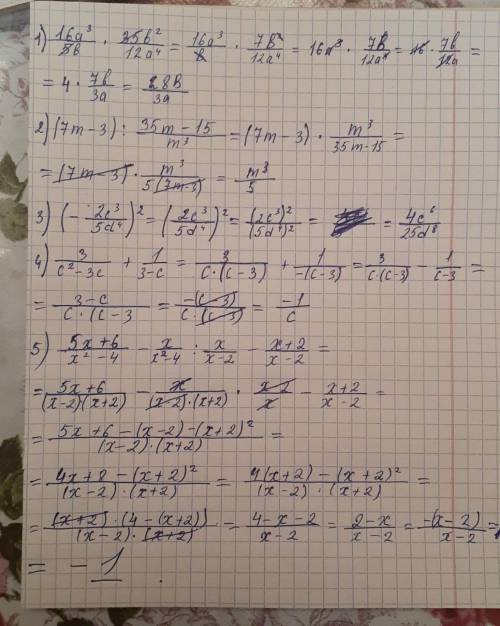 1) 16a³/5b · 35b²/12a⁴ = 16a³/b · 7b²/12a⁴ = 16a³ · 7b/12a⁴ = 16 · 7b/12a =
= 4 · 7b/3a = 28b/3a
2) (7m-3) : 35m-15/m³ = (7m-3) · m³/35m-15 =
= (7m-3) · m³/5(7m-3) = m³/5
3) (-2c³/5d⁴)² = (2c³/5d⁴)² = (2c³)²/(5d⁴)² = = 4c⁶/25d⁸
4) 3/c²-3c + 1/3-c = 3/c·(c-3) + 1/-(c-3) = 3/c·(c-3) - 1/c-3 =
= 3-c/c·(c-3 = -(c-3)/c·(c-3) = -1/c
5) 5x+6/x²-4 - x/x²-4 : x/x-2 - x+2/x-2 =
= 5x+6/(x-2)(x+2) - x/(x-2)·(x+2) · x-2/x - x+2/x-2 =
= 5x+6-(x-2)-(x+2)²/(x-2)·(x+2) =
= 4x+8-(x+2)²/(x-2)·(x+2) = 4(x+2)-(x+2)²/(x-2)·(x+2) =
= (x+2)·(4-(x+2))/(x-2)·(x+2) = 4-x-2/x-2 = 2-x/x-2 = -(x-2)/x-2 =
= -1.